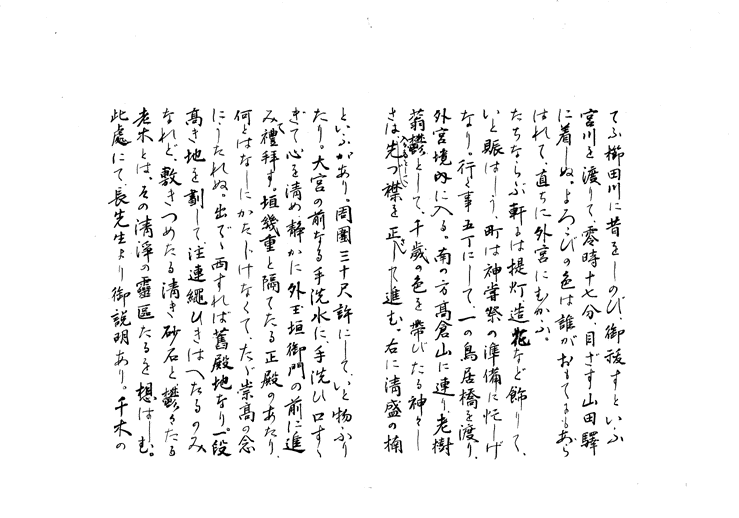 てふ櫛田川に昔をしのび、御禊すといふ
宮川を渡りて、零時十七分、目ざす山田驛
に着しぬ。よろこびの色は誰がおもてにもあら
はれて、直ちに外宮にむかふ。
たちならぶ軒々は提灯造花など飾りて、
いと賑はしう、町は神嘗祭の準備に忙しげ
なり。行く事五丁にして、一の鳥居橋を渡り、
外宮境内に入る。南の方高倉山に連り、老樹
蓊鬱として、千歳の色を帶びたる神々し
さは先づ襟を正して進む。右に清盛の楠
といふがあり。周圍三十尺許にして、いと物ふり
たり。大宮の前なる手洗水に、手洗ひ口すゝ
ぎて心を清め、静かに外玉垣御門の前に進
み禮拜す。垣幾重と隔てたる正殿のあたり、
何とはなしにかたじけなくて、たゞ崇高の念
にうたれぬ。出でゝ西すれば舊殿地なり。一段
高き地を劃して、注連繩ひきはへたるのみ
なれど、敷きつめたる清き砂石と鬱々たる
老木とは、その清淨の靈區たるを想はしむ。
此處にて、長先生より御説明あり。千木の